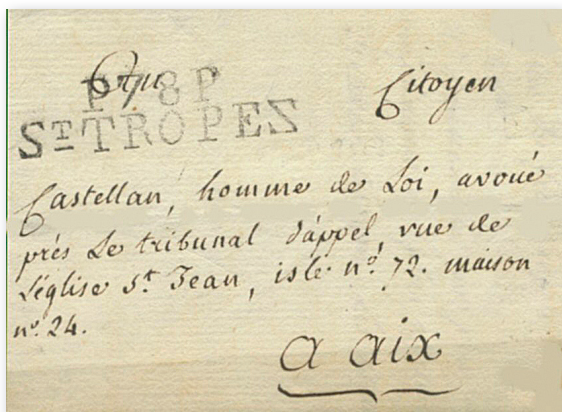 Au Citoyen
P78P
ST TROPES
Castellan, homme de Loi, avoué
près Le tribunal d'appel, rue de
L'église St. Jean, isle nº. 72. maison
nº. 24.
a aix